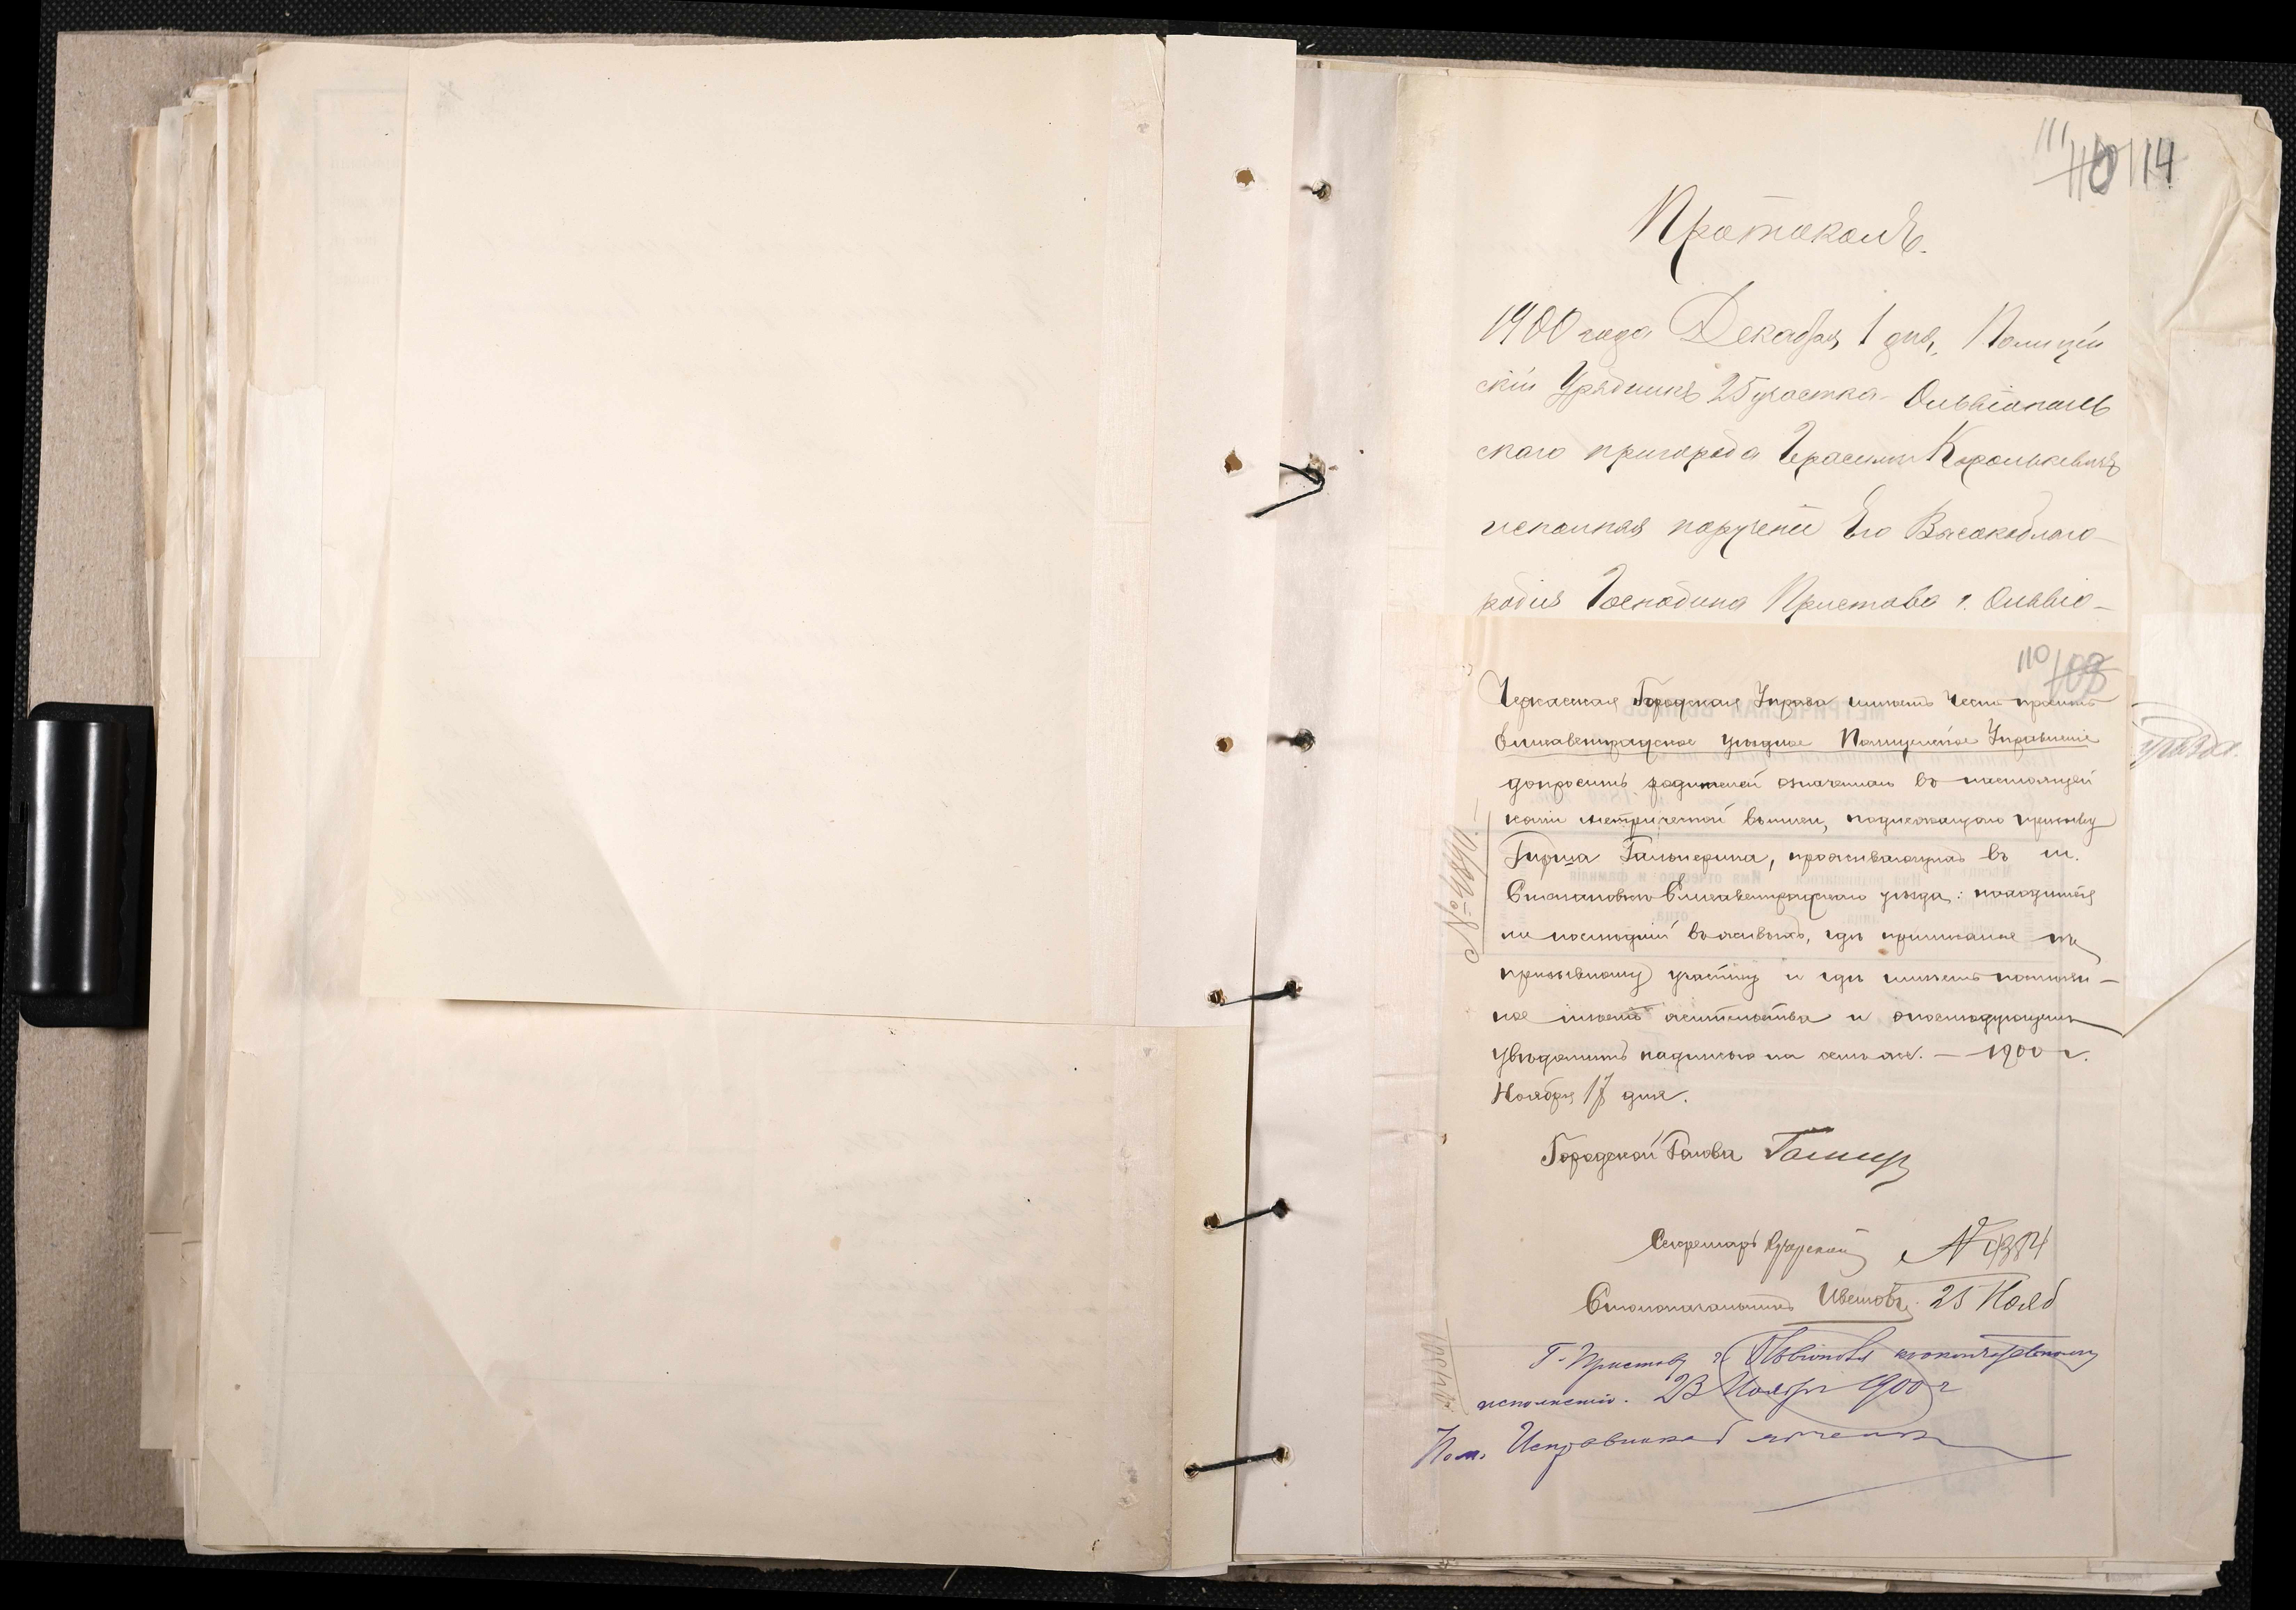 111 110 114
Протоколъ.
1900 года Декабря 1 дня, Полицей
скій Урядникъ 25 участка Ольвіополь
скаго пригорода Герасимъ Королькевичъ
исполняя порученіе Его Высокоблаго-
родія Господина Пристава г. Ольвіо-
110 108
Черкасская Городская Управа имѣетъ честь просить
Елисаветградское уѣздное Полицейское Управленіе
допросить родителей означеннаго въ настоящей
копіи метрической выписи, подлежащаго призыву
Гирша Гальперина, проживающихъ въ м.
Елисаветградскаго уѣзда: находится
ли послѣдній въ живыхъ, гдѣ приписанъ къ
призывному участку и гдѣ имѣетъ постоян-
ное мѣсто жительства и о послѣдующемъ
увѣдомить надписью на семъ же. — 1900 г.
Ноября 17 дня.
Городской Голова
Секретарь
Столоначальникъ 25 Нояб
Г. Приставу г. Ольвіополя
исполненію. 23 Ноября 1900 г
Пом. Исправника
уѣзда.